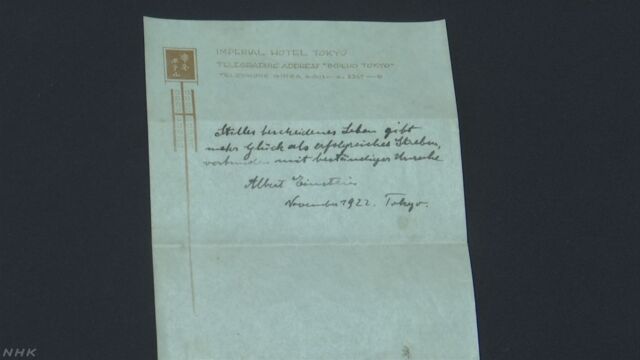 IMPERIAL HOTEL TOKYO
TELEGRAPHIC ADDRESS "IMPEHO TOKYO"
TELEPHONE GINZA
Stilles bescheidenes Leben gibt
mehr Glück als erfolgreiches Streben,
verbunden mit beständiger Unruhe.
Albert Einstein.
November 1922. Tokyo.
NHK